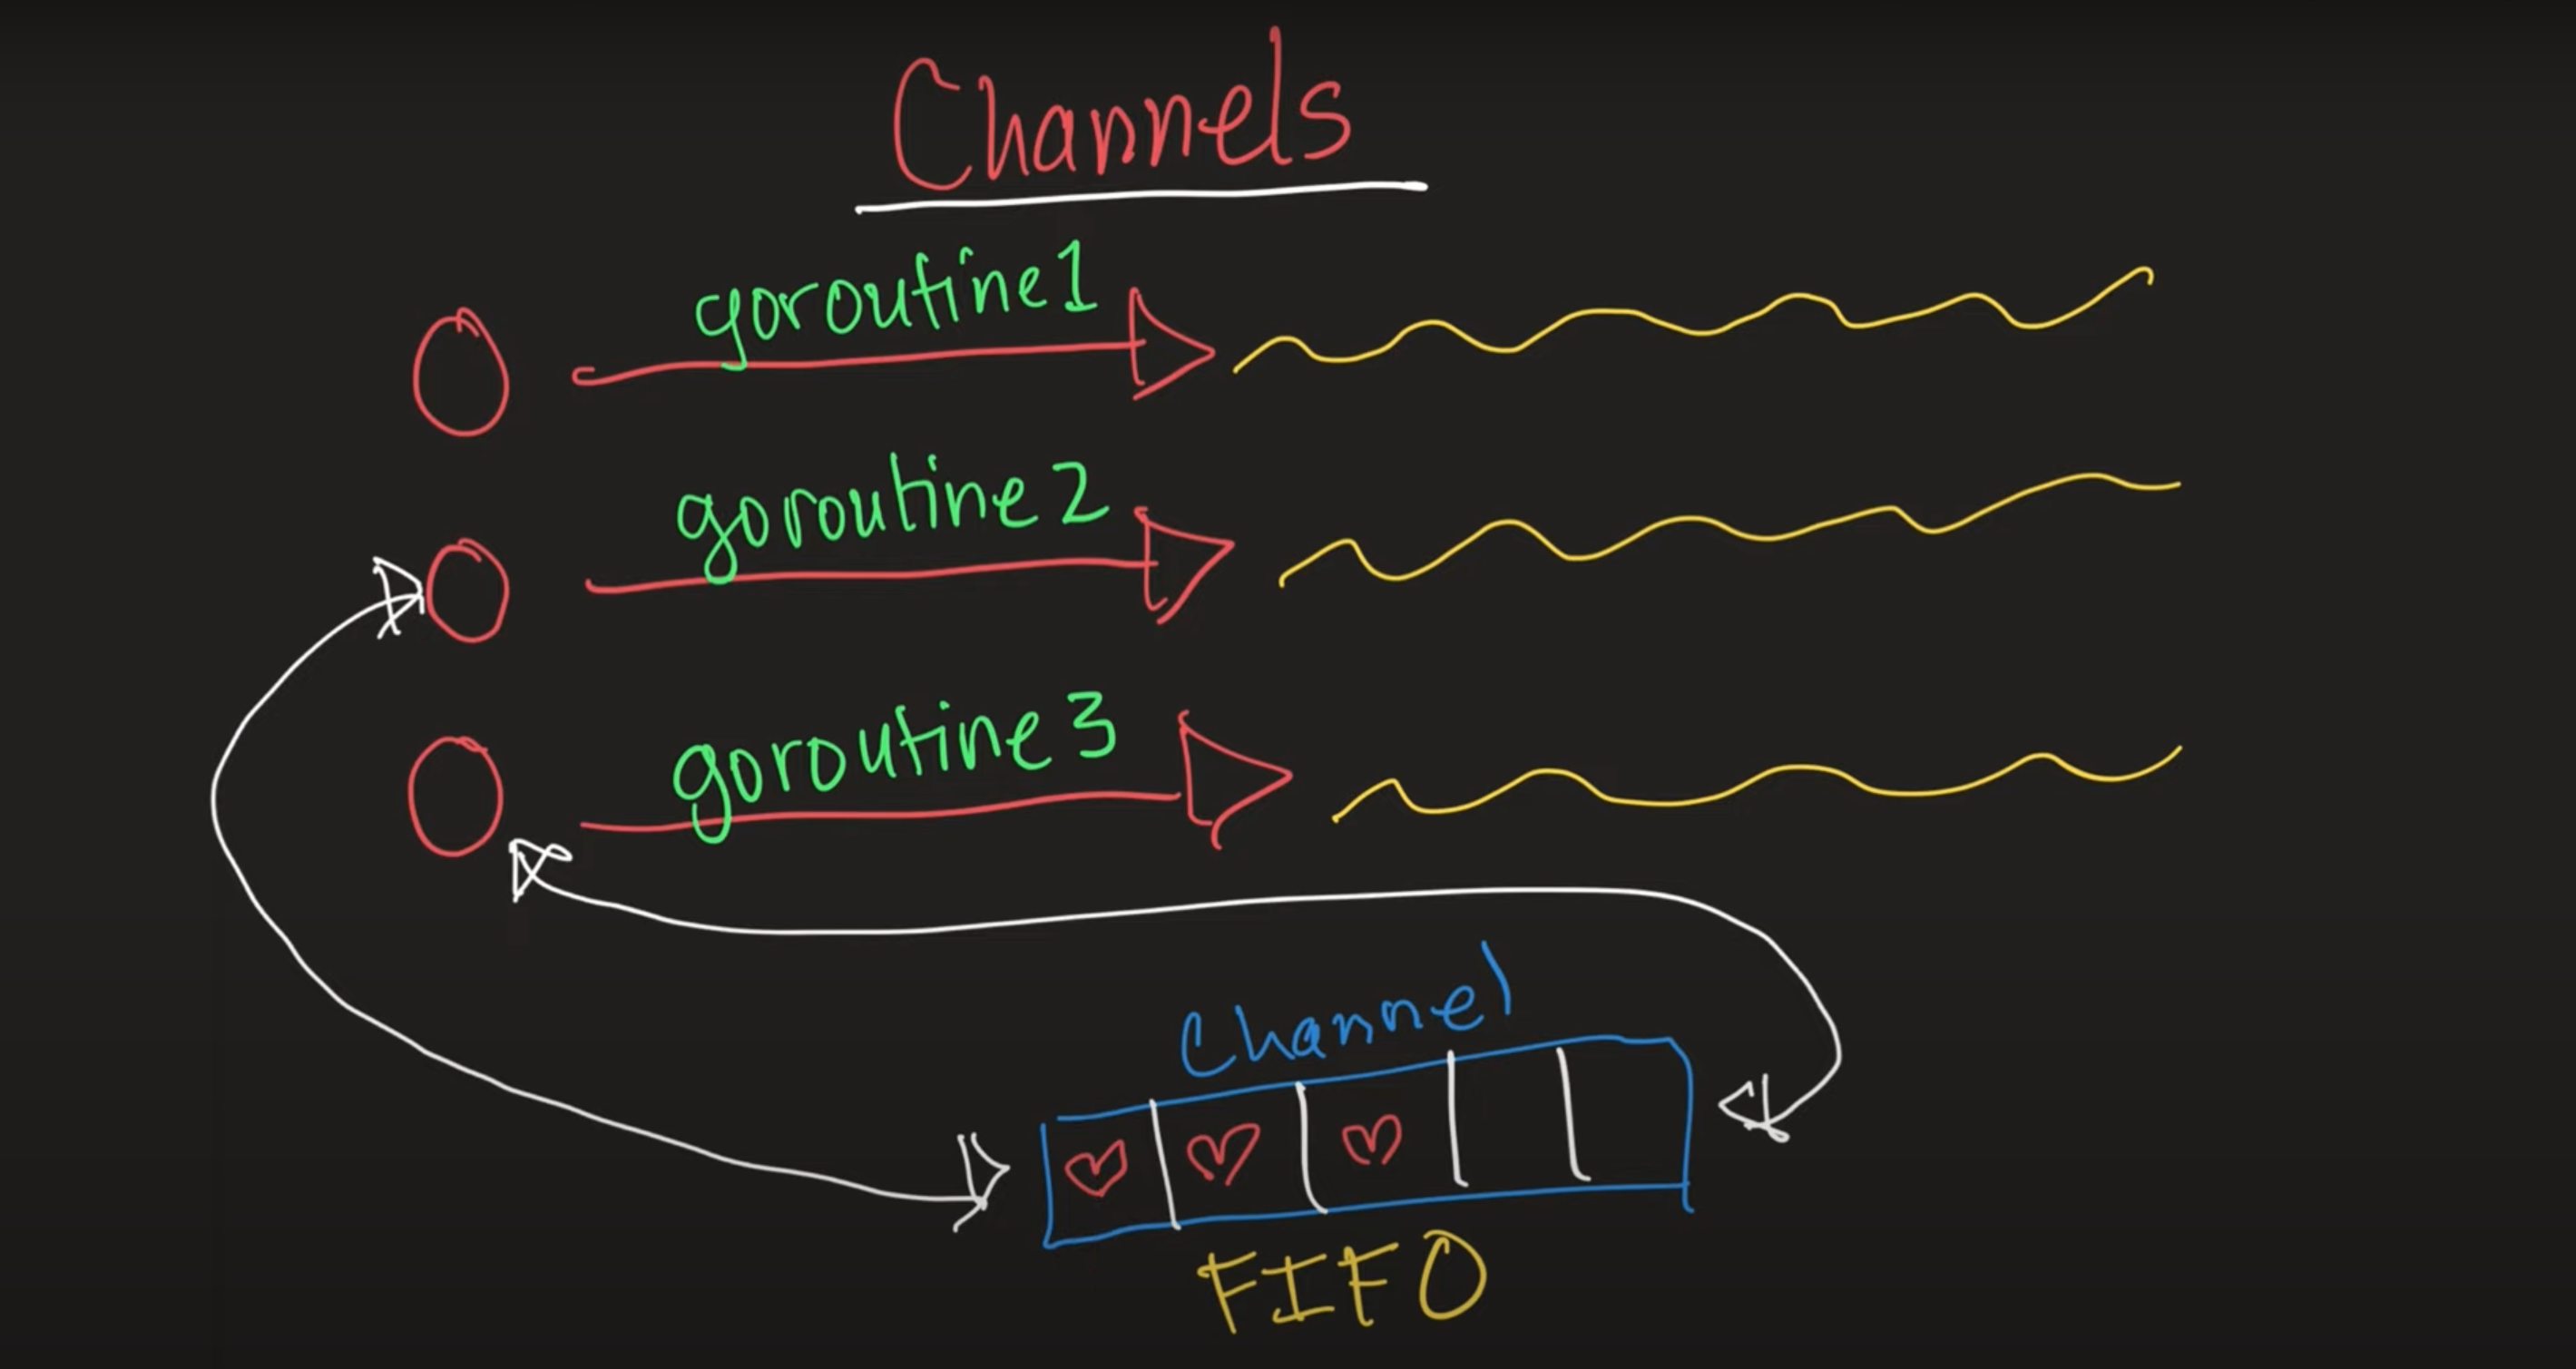 Channels
goroutine 1
goroutine 2
goroutine 3
Channel
FIFO